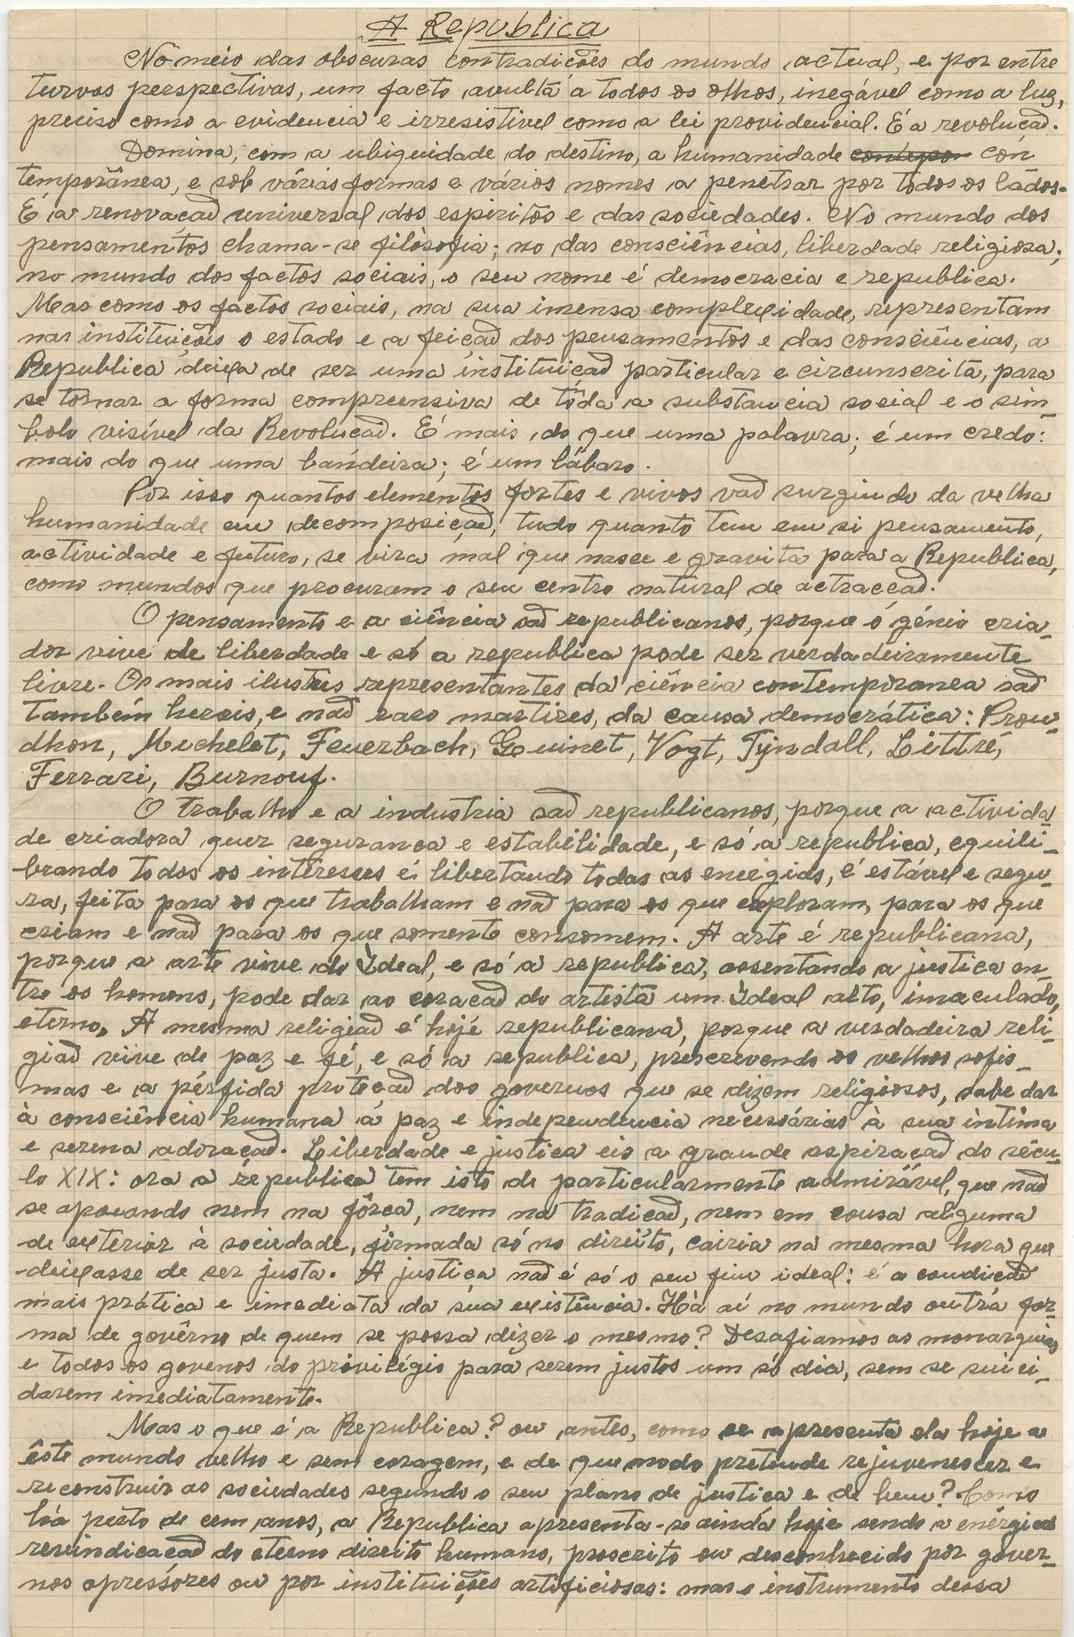 A Republica
No meio das obscuras contradições do mundo actual, e por entre
turvas perspectivas, um facto avulta a todos os olhos, inegável como a luz,
preciso como a evidencia e irresistivel como a lei providencial. É a revoluçaõ.
Domina, com a ubiguidade do destino, a humanidade con
temporânea, e sob várias formas e vários nomes a penetrar por todos os lados.
É a renovaçaõ universal dos espiritos e das sociedades. No mundo dos
pensamentos chama-se filòsofia; no das consciências, liberdade religiosa;
no mundo dos factos sociais, o seu nome é democracia e republica.
Mas como os factos sociais, na sua imensa complexidade, representam
nas instituições o estado e a feiçaõ dos pensamentos e das consciências, a
Republica deixa de ser uma instituiçaõ particular e circunscrita, para
se tornar a forma compreensiva de tôda a substancia social e o sim-
bolo visível da Revoluçaõ. É mais do que uma palavra; é um credo:
mais do que uma bandeira; é um lábaro.
Por isso quantos elementos fortes e vivos vaõ surgindo da velha
humanidade em decomposiçaõ, tudo quanto tem em si pensamento,
actividade e futuro, se vira mal que nasce e gravita para a Republica,
como mundos que procuram o seu centro natural de actracçaõ.
O pensamento e a ciência saõ republicanos, porque o génio cria-
dor vive de liberdade e só a republica pode ser verdadeiramente
livre. Os mais ilustres representantes da ciência contemporanea saõ
também herois, e naõ raro martires, da causa democrática: Prou-
dhon, Michelet, Feuerbach, Guinet, Vogt, Tyndall, Littré,
Ferrari, Burnouf.
O trabalho e a industria saõ republicanos, porque a activida
de criadora quer segurança e estabilidade, e só a republica, equili-
brando todos os interesses e libertando todas as energias, é estável e segu-
ra, feita para os que trabalham e naõ para os que exploram, para os que
criam e naõ para os que somente consomem. A arte é republicana,
porque a arte vive do Ideal, e só a republica, assentando a justiça en-
tre os homens, pode dar ao coraçaõ do artista um Ideal alto, imaculado,
eterno. A mesma religiaõ é hoje republicana, porque a verdadeira reli-
giaõ vive de paz e fé, e só a republica, prescrevendo os velhos sofis-
mas e a pérfida proteçaõ dos governos que se dizem religiosos, sabe dar
à consciência humana a paz e independencia necessárias à sua intima
e serena adoraçaõ. Liberdade e justiça eis a grande aspiraçaõ do sécu-
lo XIX: ora a republica tem isto de particularmente admirável, que naõ
se apoiando nem na fôrça, nem na tradiçaõ, nem em cousa alguma
de exterior à sociedade, firmada só no direito, cairia na mesma hora que
deixasse de ser justa. A justiça naõ é só o seu fim ideal: é a condiçaõ
mais prática e imediata da sua existência. Há aí no mundo outra for-
ma de govêrno de quem se possa dizer o mesmo? Desafiamos as monarquias
e todos os govenos do privilégio para serem justos um só dia, sem se suici-
darem imediatamente.
Mas o que é a Republica? ou antes, como se apresenta ela hoje a
êste mundo velho e sem coragem, e de que modo pretende rejuvenescer e
reconstruir as sociedades segundo o seu plano de justiça e de bem? Como
há perto de cem anos, a Republica apresenta-se ainda hoje sendo a enérgica
revindicaçaõ do eterno direito humano, proscrito ou desconhecido por gover-
nos opressores ou por instituições artificiosas: mas o instrumento dessa